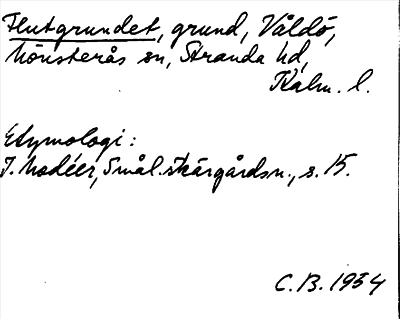 Flutgrundet, grund, Våldö,
Mönsterås sn, Stranda hd,
Kalm. l.
Etymologi:
I. Modéer, Smål. skärgårdsn., s. 15.
C.B. 1934